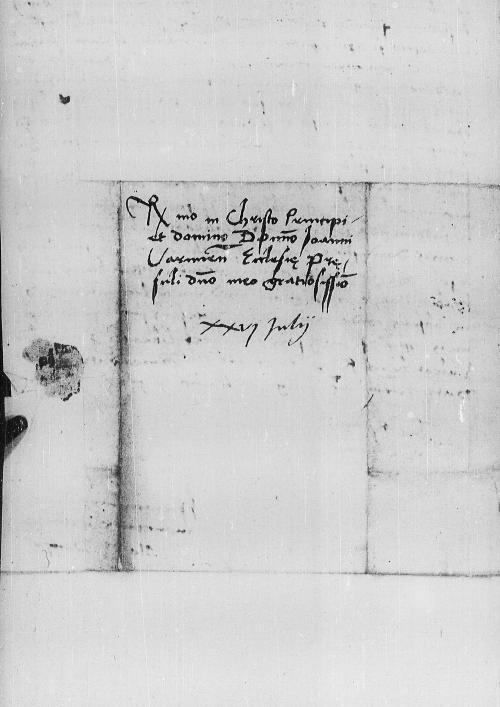 Rx mo in Christo Principi
et domino Domno Joanni
Varmien Ecclesię Prę-
suli dno meo gratiosissio
xxvj Julij